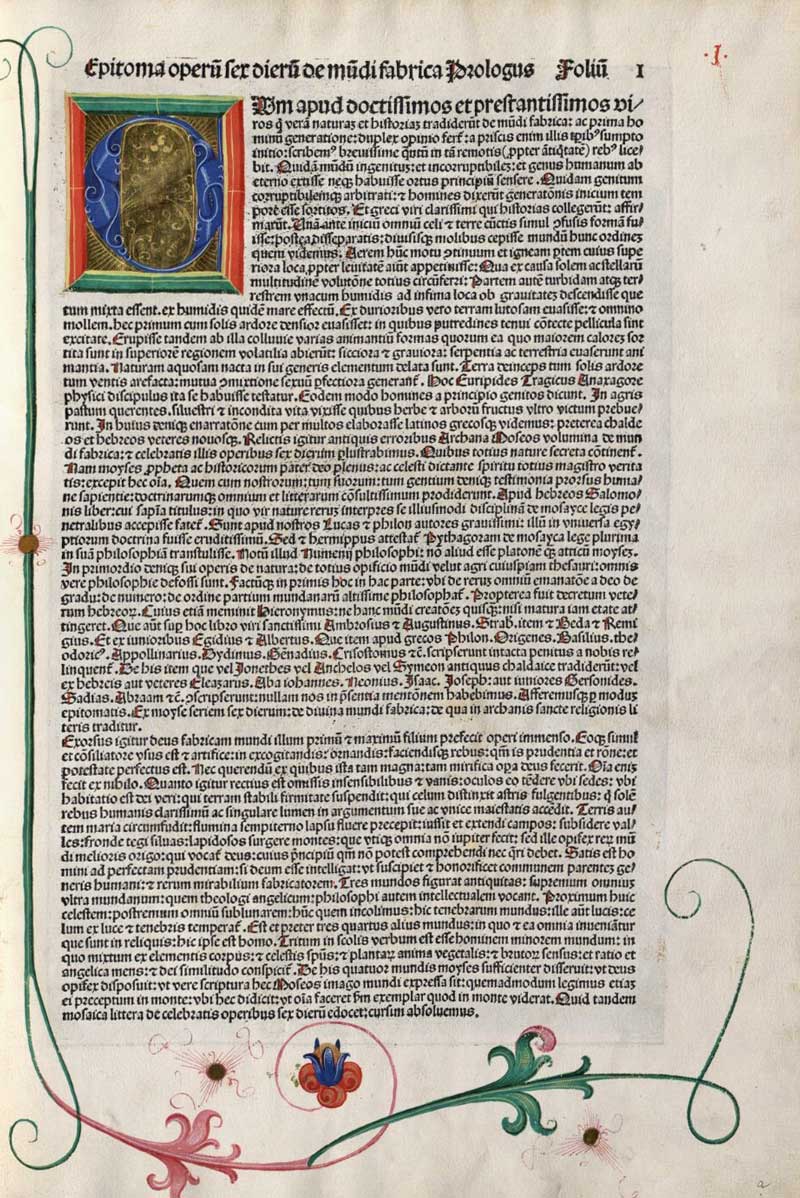 Epitoma operū sex dierū de mūdi fabrica Prologus Foliū I
·I·
Vm apud doctissimos et prestantissimos vi/
ros q̇ verā naturaꝫ et historiaꝫ tradiderūt de mūdi fabrica: ac prima ho
minū generatione: duplex opinio fert᷑: a priscis enim illis tꝑibꝰ sumpto
initio: scribemꝰ breuissime q̄ntū in tā remotis (ꝓpter āt̄iqtatē) rebꝰ lice/
bit. Quidā mūdū ingenitūꝫ: et incorruptibileꝫ: et genus humanum ab
eterno extisse neqꝫ habuisse ortus principiū sensere. Quidam genitum
corruptibileinqꝫ arbitrati: ⁊ homines dixerūt generatōnis inicium tem
pore esse sortitos. Et greci viri clarissimi qui historias collegerūt: affir/
marūt. Vnā ante iniciū omniū celi ⁊ terre cūctis simul ꝯfusis formā fu/
isse: postea disseparatis: diuisisqꝫ molibus cepisse mundū hunc ordineꝫ
quem videmus. Aerem hūc motu ꝯtinuum et igneam ꝑtem cuius supe
riora loca ꝓpter leuitatē aiūt appetinisse: Qua ex causa solem ac stellarū
multitudinē volutōne totius circūferri: Partem autem turbidam atqꝫ ter/
restrem vnacum humidis ad infima loca ob grauitateꝫ descendisse que
tum mixta essent. ex humidis quidē mare effectū. Ex durioribus vero terram lutosam euasisse: ⁊ omnino
mollem. hec primum cum solis ardore densior euasisset: in quibus putredines tenui cōtecte pellicula sint
excitate. Erupisse tandem ab illa colluuie varias animantiū formas quorum ea quo maiorem calores sor
tita sunt in superiorē regionem volatilia abierūt: sicciora ⁊ grauiora: serpentia ac terrestria euaserunt ani
mantia. Naturam aquosam nacta in sui generis elementum delata sunt. Terra deinceps tum solis ardore
tum ventis arefacta: mutua ꝯmixtione sexuū ꝑfectiora generant᷑. Hoc Euripides Tragicus Anaxagore
physici discipulus ita se habuisse testatur. Eodem modo homines a principio genitos dicunt. In agris
pastum querentes. siluestri ⁊ incondita vita vixisse quibus herbe ⁊ arborū fructus vltro victum prebue/
runt. In huius deniqꝫ enarratōne cum per multos elaborasse latinos grecosqꝫ videmus: preterea chalde
os et hebreos veteres nouosqꝫ. Relictis igitur antiquis erroribus Archana Moseos volumina de mun
di fabrica: ⁊ celebratis illis operibus sex dierum ꝑlustrabimus. Quibus totius nature secreta continent᷑.
Nam moyses ꝓpheta ac historicorum pater deo plenus: ac celesti dictante spiritu totius magistro verita
tis: excepit hec oīa. Quem cum nostrorum: tum suorum: tum gentium deniqꝫ testimonia prorsus huma
ne sapientie: doctrinarumqꝫ omnium et litterarum cōsultissimum prodiderunt. Apud hebreos Salomo/
nis liber: cui sapīa titulus: in quo vir nature reruꝫ interpres se illiusmodi disciplinā de mosayce legis pe/
netralibus accepisse fatet᷑. Sunt apud nostros Lucas ⁊ philon autores grauissimi: illū in vniuersa egy/
ptiorum doctrina fuisse eruditissimū. Sed ⁊ hermippus attestat᷑ Pythagoram de mosayca lege plurima
in suā philosophiā transtulisse. Notū illud Numenij philosophi: nō aliud esse platonē qꝫ atticū moyseꝫ.
In primordio deniqꝫ sui operis de natura: de totius opificio mūdi velut agri cuiuspiam thesauri: omnis
vere philosophie defossi sunt. Factūqꝫ in primis hoc in hac parte: vbi de reruꝫ omniū emanatōne a deo de
gradu: de numero: de ordine partium mundanarū altissime philosophat᷑. Propterea fuit decretum vete/
rum hebreoꝝ. Cuius etiā meminit Hieronymus: ne hanc mūdi creatōeꝫ quisqꝫ: nisi matura iam etate at/
tingeret. Que aūt suꝑ hoc libro viri sanctissimi Ambrosius ⁊ Augustinus. Strab. item ⁊ Beda ⁊ Remi
gius. Et ex iunioribus Egidius ⁊ Albertus. Que item apud grecos Philon. Origenes. Basilius. the/
odoricꝰ. Appollinarius. Dydimus. Gēnadius. Crisostomus ⁊c̄. scripserunt intacta penitus a nobis re/
linquent᷑. De his item que vel Jonethes vel Anchelos vel Symeon antiquus chaldaice tradiderūt: vel
ex hebreis aut veteres Eleazarus. Aba iohannes. Neonius. Isaac. Joseph: aut iuniores Gersonides.
Sadias. Abraam ⁊c̄. ꝯscripserunt: nullam nos in ꝑsentia mentōnem habebimus. Afferemusqꝫ ꝑ moduꝫ
epitomatis. Ex moyse seriem sex dierum: de diuina mundi fabrica: de qua in archanis sancte religionis li
teris traditur.
Exorsus igitur deus fabricam mundi illum primū ⁊ maximū filium prefecit operi immenso. Eoqꝫ simul
et cōsiliatore vsus est ⁊ artifice: in excogitandis: ornandis: faciendisqꝫ rebus: qm̄ is prudentia et rōne: et
potestate perfectus est. Nec querendū ex quibus ista tam magna: tam mirifica oꝑa deus fecerit. Oīa eniꝫ
fecit ex nihilo. Quanto igitur rectius est omissis insensibilibus ⁊ vanis: oculos eo tēdere vbi sedes: vbi
habitatio est dei veri: qui terram stabili firmitate suspendit: qui celum distinxit astris fulgentibus: q̇ solē
rebus humanis clarissimū ac singulare lumen in argumentum sue ac vnice maiestatis accēdit. Terris au/
tem maria circumfudit: flumina sempiterno lapsu fluere precepit: iussit et extendi campos: subsidere val/
les: fronde tegi siluas: lapidosos surgere montes: que vtiqꝫ omnia nō iupiter fecit: sed ille opifex reꝝ mū
di melioris origo: qui vocat᷑ deus: cuius ṗncipiū qm̄ nō potest comprehendi nec q̄ri debet. Satis est ho
mini ad perfectam prudentiam: si deum esse intelligat: vt suscipiet ⁊ honorificet communem parenteꝫ ge/
neris humani: ⁊ rerum mirabilium fabricatorem. Tres mundos figurat antiquitas: supremum omniuꝫ
vltra mundanum: quem theologi angelicum: philosophi autem intellectualem vocant. Proximum huic
celestem: postremum omniū sublunarem: hūc quem incolimus: hic tenebrarum mundus: ille aūt lucis: ce
lum ex luce ⁊ tenebris temperat᷑. Est et preter tres quartus alius mundus: in quo ⁊ ea omnia inueniātur
que sunt in reliquis: hic ipse est homo. Tritum in scolis verbum est esse hominem minorem mundum: in
quo mixtum ex elementis corpus: ⁊ celestis spūs: ⁊ plantaꝝ anima vegetalis: ⁊ brutoꝝ sensus: et ratio et
angelica mens: ⁊ dei similitudo conspicit᷑. De his quatuor mundis moyses sufficienter disseruit: vt deus
opifex disposuit: vt vere scriptura hec Moseos imago mundi expressa sit: quemadmodum legimus etiaꝫ
ei preceptum in monte: vbi hec didicit: vt oīa faceret ẜm exemplar quod in monte viderat. Quid tandem
mosaica littera de celebratis operibus sex dierū edocet: cursim absoluemus.
a